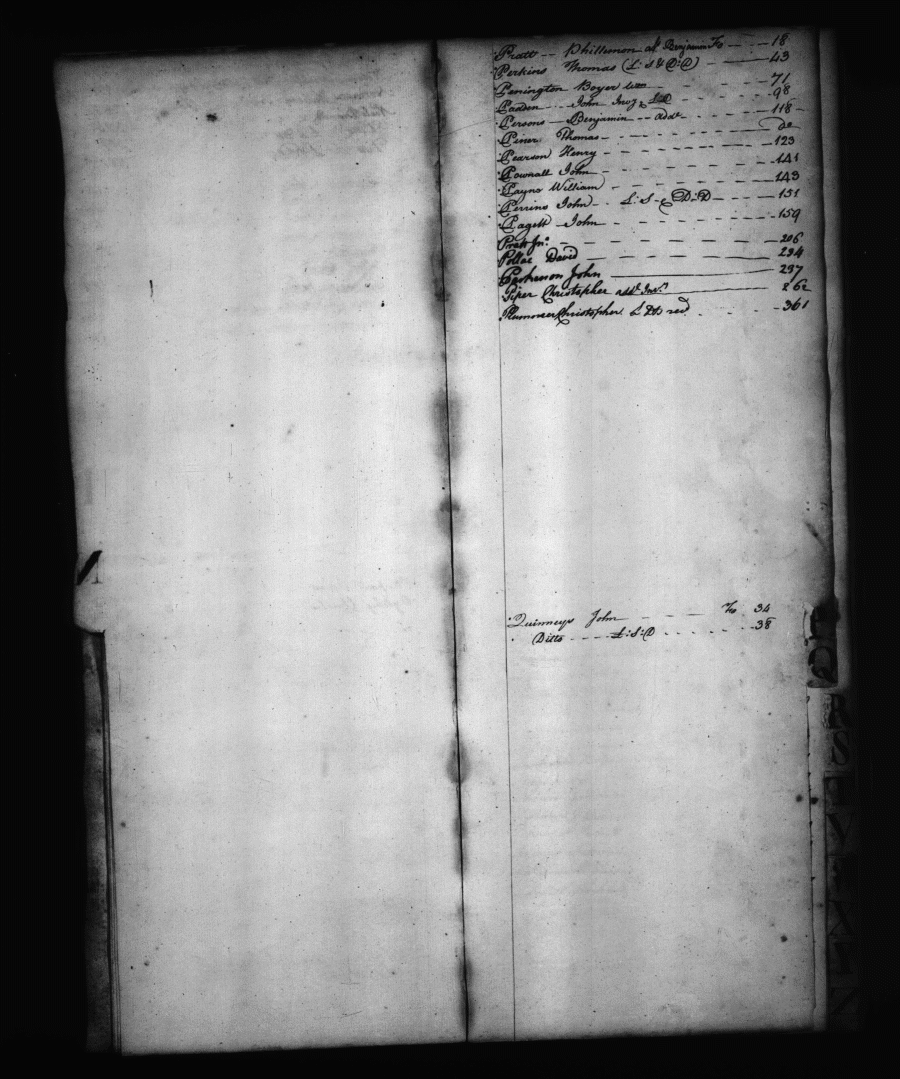 Pratt -- Phillemon al Benjamin Fo --- 18
Perkins Thomas (L: S & D: D) --- 43
Penington Boyer --- 71
Padden John Invy. L D 98
Persons Benjamin -- adr. --- 118
Piner Thomas --- do
Pearson Henry --- 123
Pownall John --- 141
Payne William --- 143
Perrins John L: S - & D: D --- 151
Pagett John --- 159
Pratt Jno. --- 206
Pollac David --- 234
John --- 237
Piper Christopher add. Inv. --- 262
Plummer Christopher L Ds red --- 361
Quinneys John --- Fo 34
Ditto --- L: S: D --- 38
Q
R
S
T
V